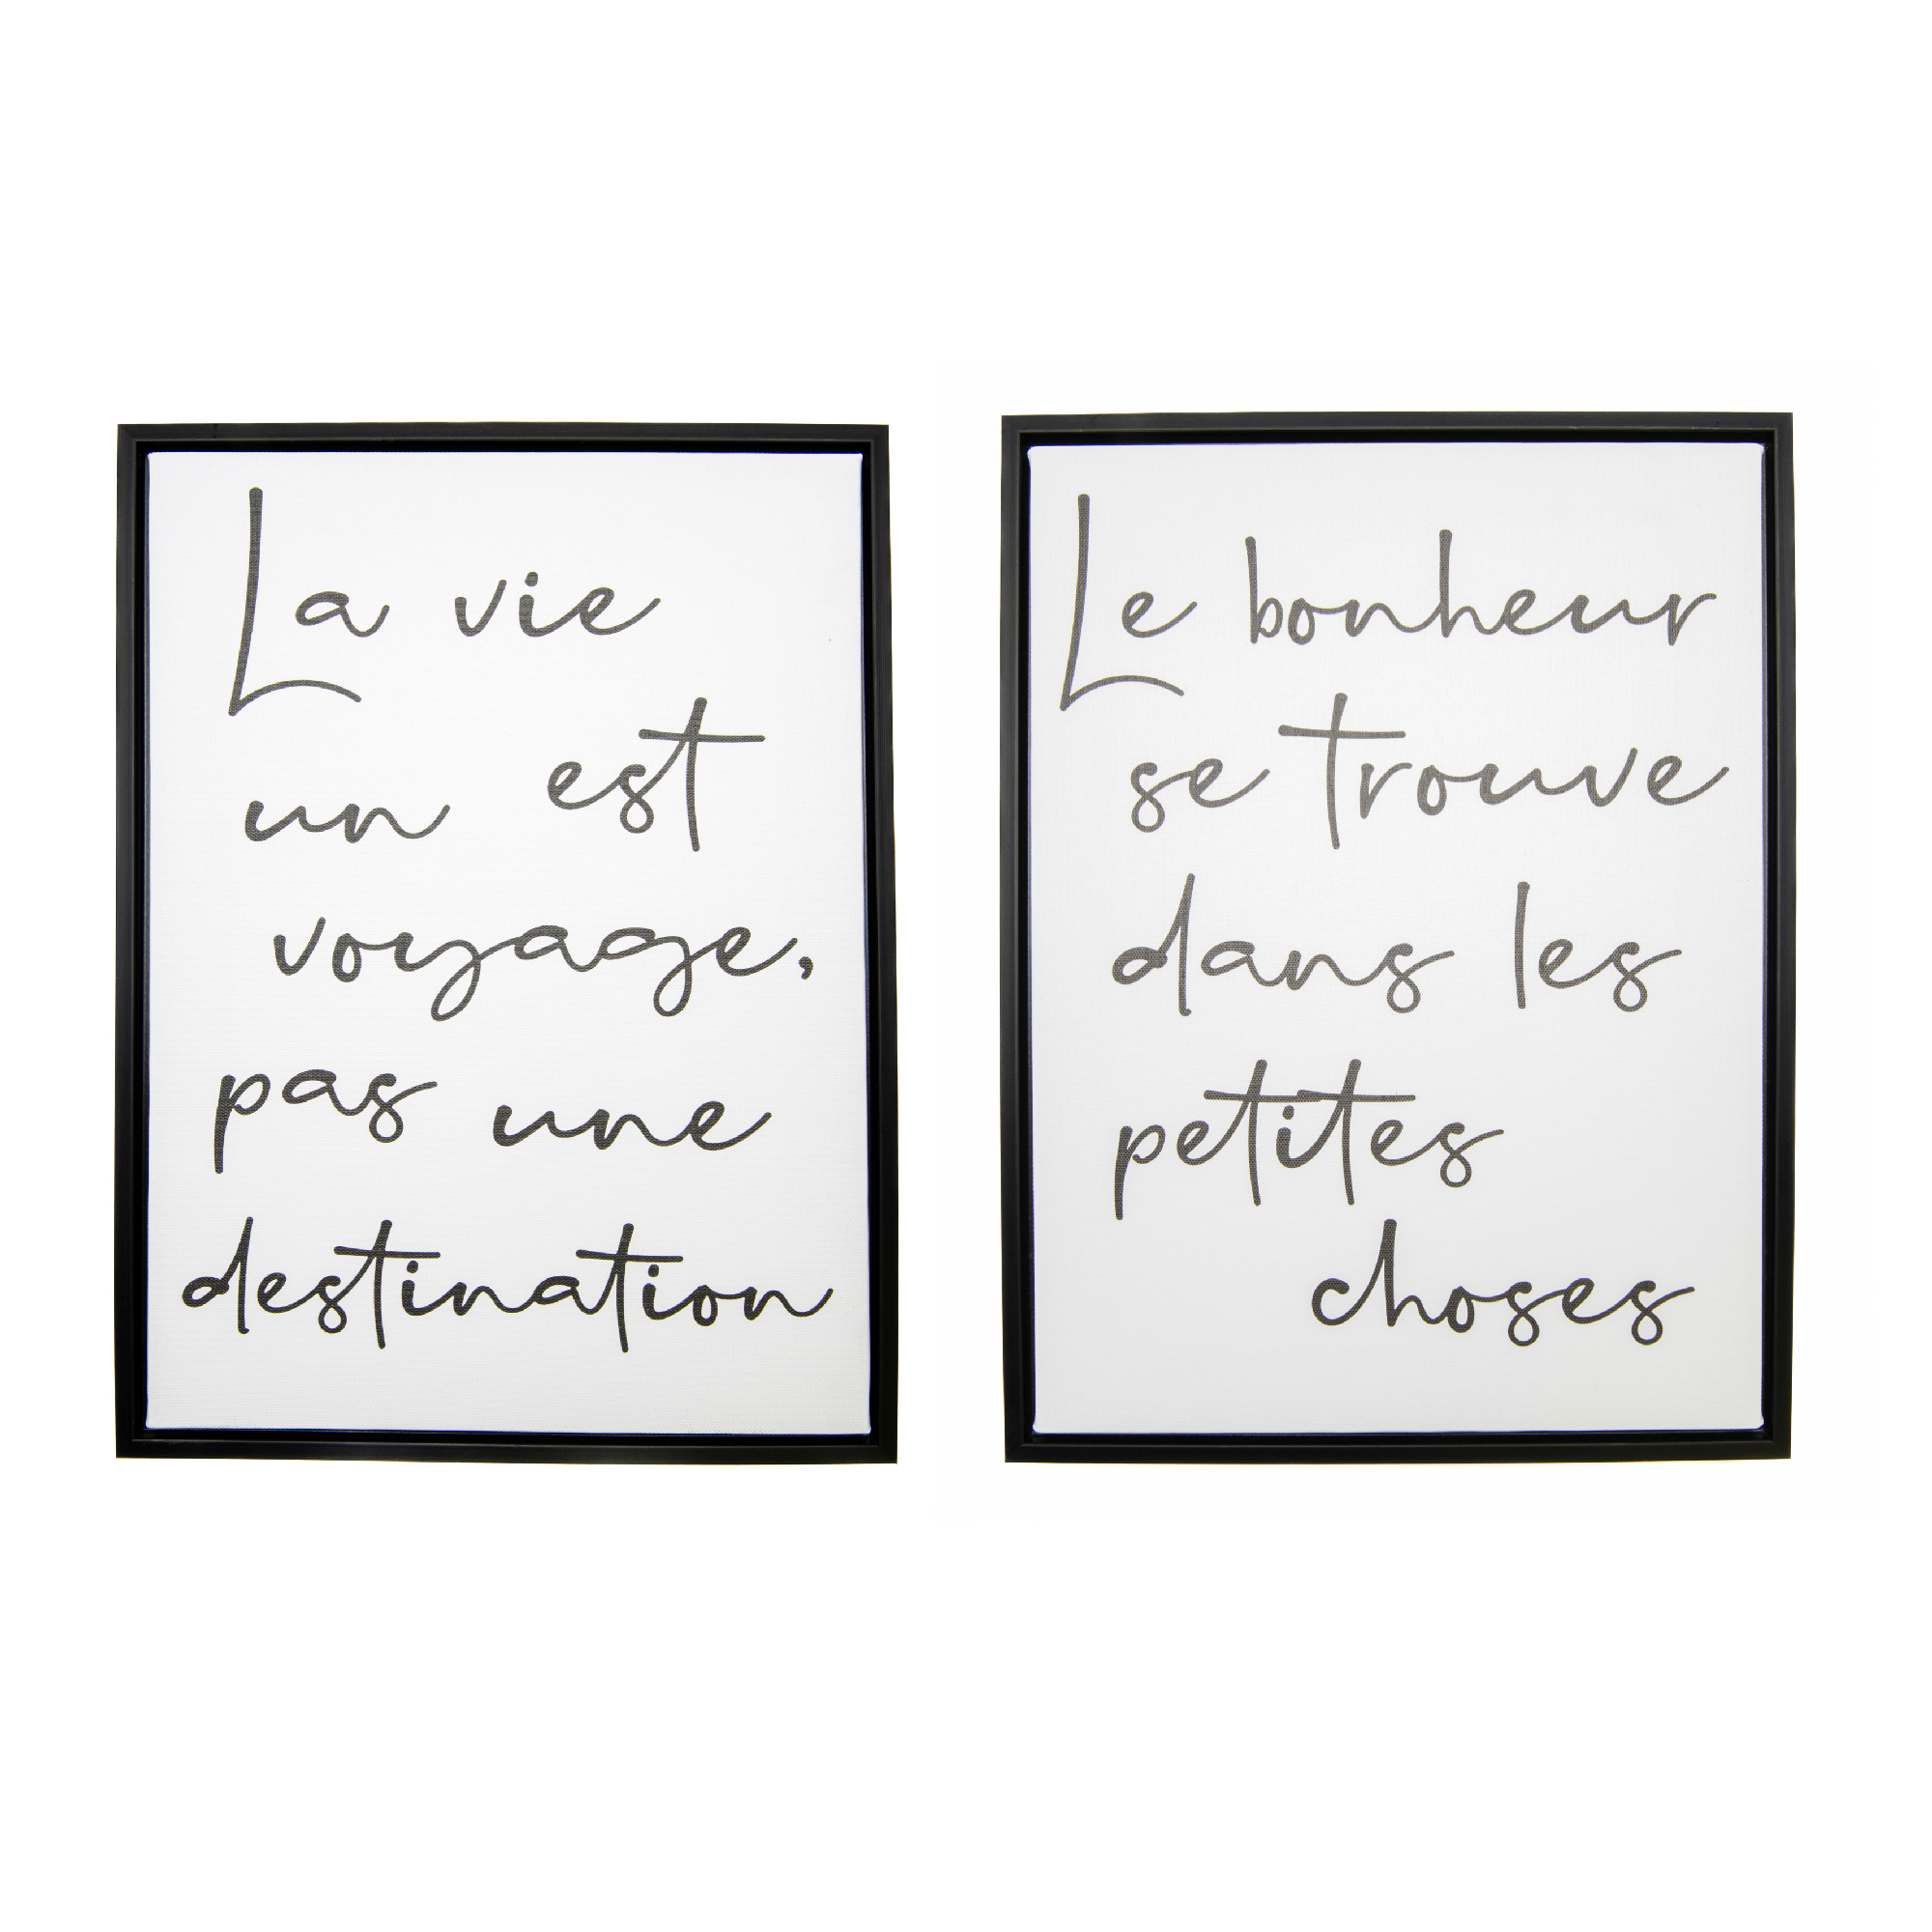 La vie
est
un
voyage,
pas une
destination
Le bonheur
se trouve
dans les
petites
choses